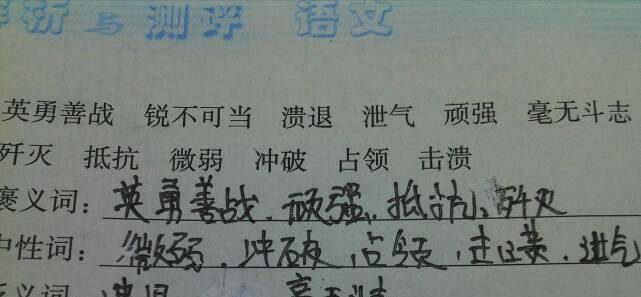 析与测评 语文
英勇善战 锐不可当 溃退 泄气 顽强 毫无斗志
歼灭 抵抗 微弱 冲破 占领 击溃
褒义词：英勇善战、顽强、抵抗、歼灭
中性词：微弱、冲破、占领、